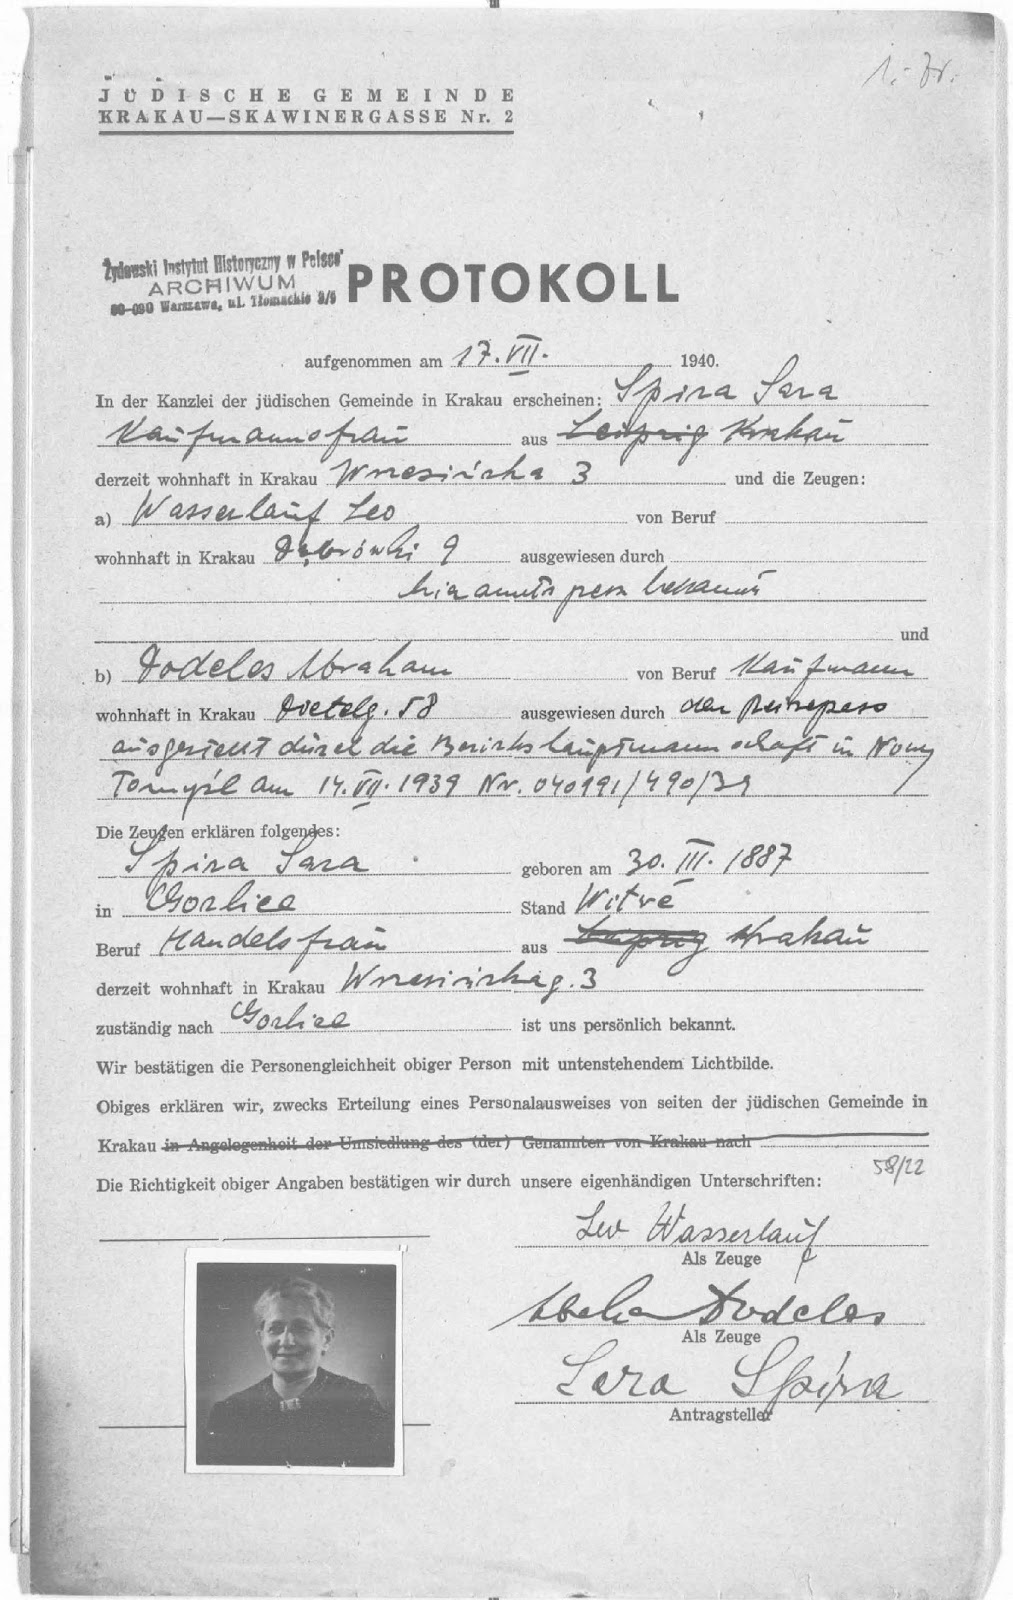 1.- Zł.
JÜDISCHE GEMEINDE
KRAKAU—SKAWINERGASSE Nr. 2
Żydowski Instytut Historyczny w Polsce
ARCHIWUM
00-090 Warszawa, ul. Tłomackie 3/5
PROTOKOLL
aufgenommen am 17. VII. 1940.
In der Kanzlei der jüdischen Gemeinde in Krakau erscheinen: Spira Sara
Kaufmannsfrau aus Leipzig Krakau
derzeit wohnhaft in Krakau Wrzesińska 3 und die Zeugen:
a) Wasserlauf Leo von Beruf
wohnhaft in Krakau Dąbrówki 9 ausgewiesen durch
hieramts pers bekannt
und
b) Dodeles Abraham von Beruf Kaufmann
wohnhaft in Krakau Dietelg. 58 ausgewiesen durch den Reisepass
ausgestellt durch die Bezirkshauptmannschaft in Nowy
Tomyśl am 14. VII. 1939 Nr. 040191/490/39
Die Zeugen erklären folgendes:
Spira Sara geboren am 30. III. 1887
in Gorlice Stand Witwe
Beruf Handelsfrau aus Leipzig Krakau
derzeit wohnhaft in Krakau Wrzesińskag. 3
zuständig nach Gorlice ist uns persönlich bekannt.
Wir bestätigen die Personengleichheit obiger Person mit untenstehendem Lichtbilde.
Obiges erklären wir, zwecks Erteilung eines Personalausweises von seiten der jüdischen Gemeinde in
Krakau in Angelegenheit der Umsiedlung des (der) Genannten von Krakau nach
58/22
Die Richtigkeit obiger Angaben bestätigen wir durch unsere eigenhändigen Unterschriften:
Leo Wasserlauf
Als Zeuge
Dodeles
Als Zeuge
Sara Spira
Antragsteller